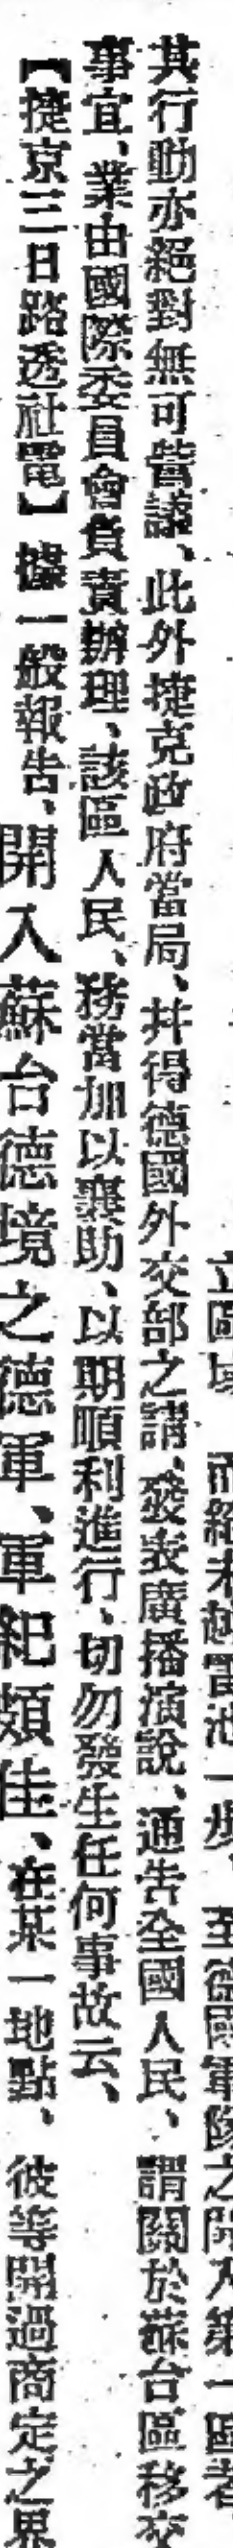 立區域、而絕未越雷池一步、至德國軍隊之開入第一區者、
其行動亦絕對無可訾議、此外捷克政府當局、幷得德國外交部之請、發表廣播演說、通告全國人民、謂關於蘇台區移交
事宜、業由國際委員會負責辦理、該區人民、務當加以襄助、以期順利進行、切勿發生任何事故云、
【捷京三日路透社電】據一般報告、開入蘇台德境之德軍、軍紀頗佳、在某一地點、彼等開過商定之界